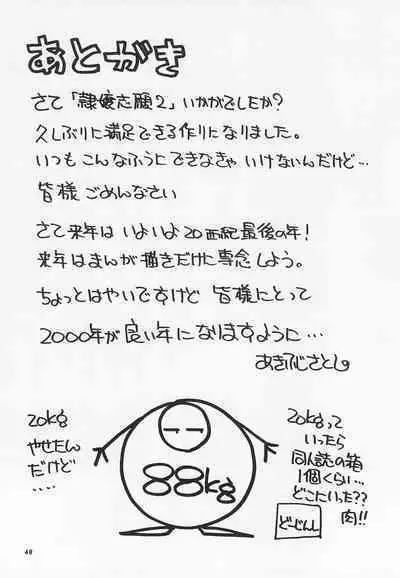 あとがき
さて「隷嬢志願2」いかがでしたか?
久しぶりに満足できる作りになりました。
いつもこんなふうにできなきゃいけないんだけど…
皆様ごめんなさい
さて来年はいよいよ20世紀最後の年!
来年はまんが描きだけに専念しよう。
ちょっとはやいですけど皆様にとって
2000年が良い年になりますように…
あきふじさとし
20kg
やせたん
だけど
....
88kg
20kgって
いったら
同人誌の箱
1個くらい…
どこいった??
肉!!
どーじんし
48